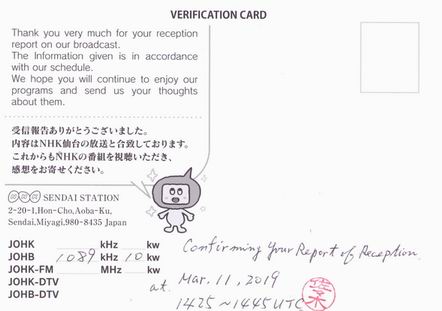 VERIFICATION CARD
Thank you very much for your reception
report on our broadcast.
The Information given is in accordance
with our schedule.
We hope you will continue to enjoy our
programs and send us your thoughts
about them.
受信報告ありがとうございました。
内容はNHK仙台の放送と合致しております。
これからもNHKの番組を視聴いただき、
感想をお寄せください。
NHK SENDAI STATION
2-20-1,Hon-Cho,Aoba-Ku,
Sendai,Miyagi,980-8435 Japan
JOHK kHz kw
JOHB 1089 kHz 10 kw
JOHK-FM MHz kw
JOHK-DTV
JOHB-DTV
Confirming Your Report of Reception.
at Mar. 11, 2019
1425~1445 UTC